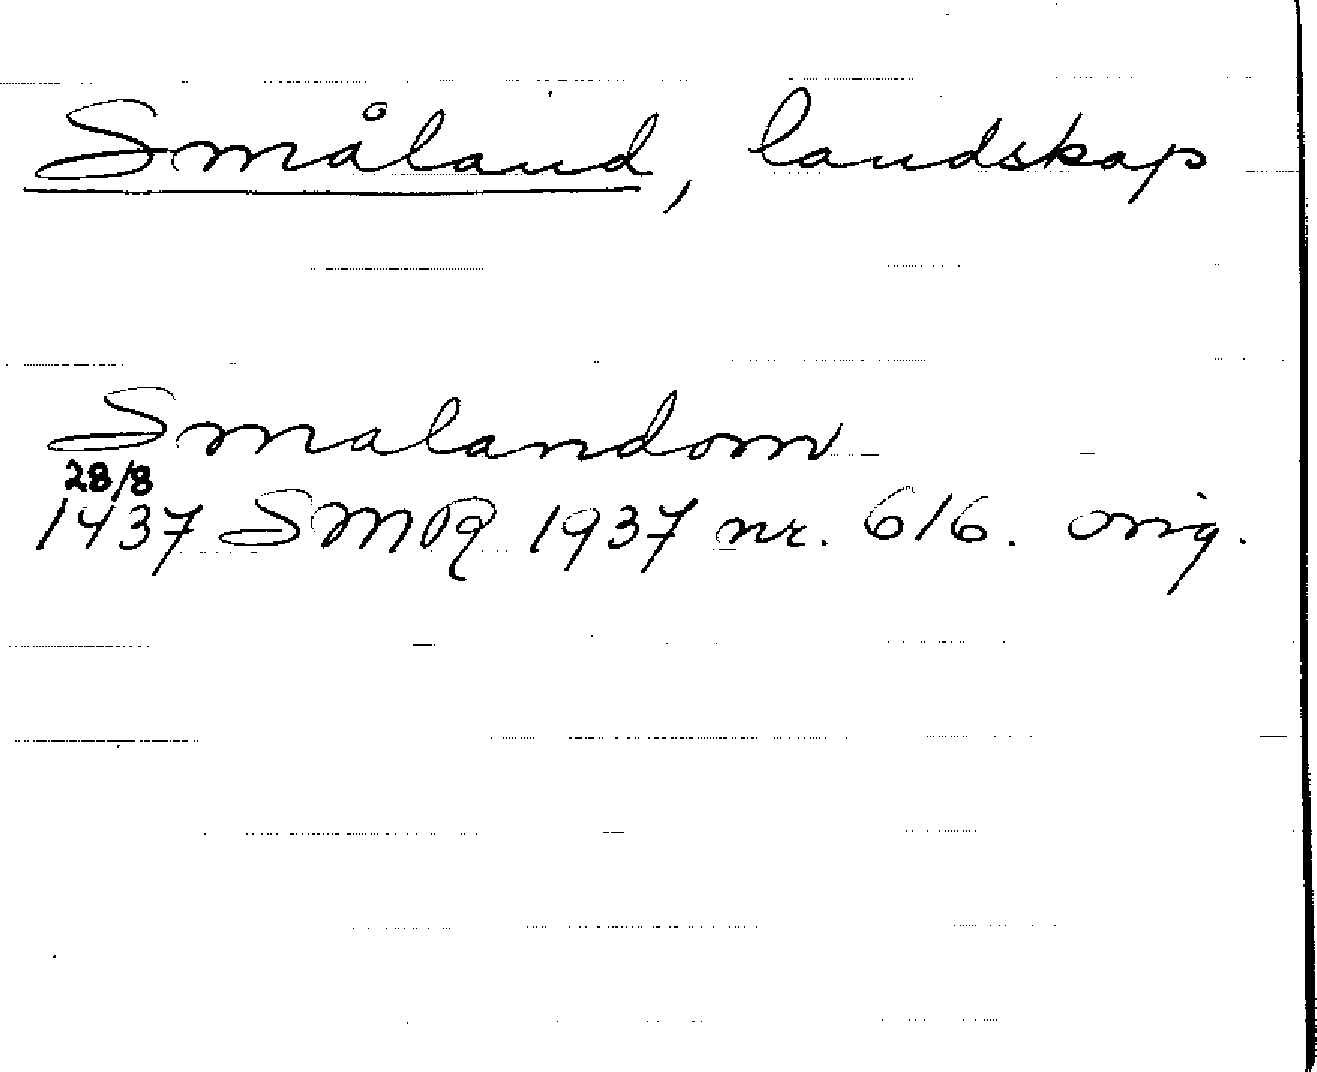 Småland, landskap
Smalandom
28/8
1437 SMR 1937 nr. 616. orig.